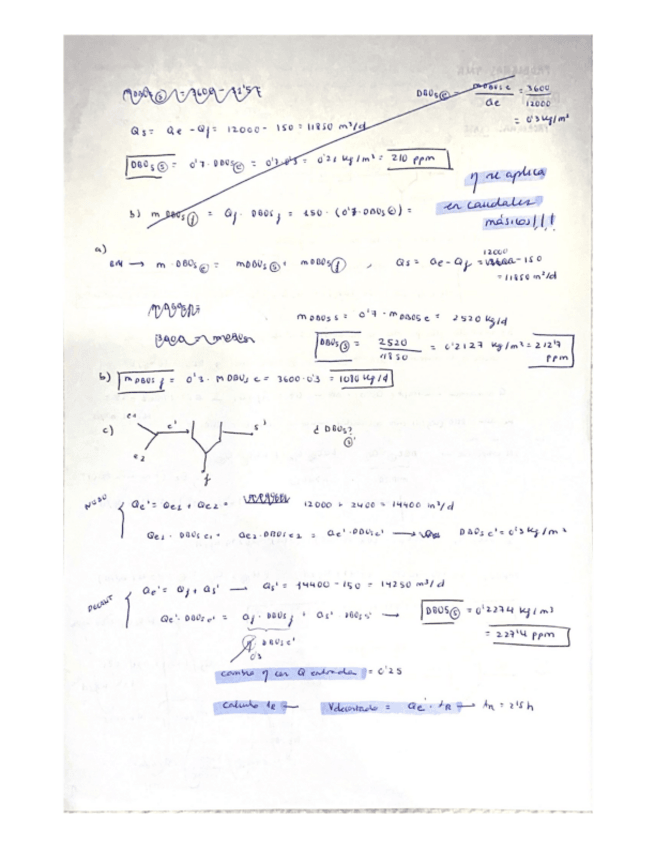 DBO5(e) = mDBO5 e / Qe = 3600 / 12000 = 0'3 kg/m³
Qs = Qe - Qf = 12000 - 150 = 11850 m³/d
DBO5(s) = 0'7 · DBO5(e) = 0'7·0'3 = 0'21 kg/m³ = 210 ppm
η se aplica
en caudales
másicos!!!
b) m DBO5(f) = Qf · DBO5f = 150 · (0'7·DBO5(e)) =
a)
BM → m·DBO5(e) = mDBO5(s) + mDBO5(f) , Qs = Qe - Qf = 12000 - 150
= 11850 m³/d
mDBO5 s = 0'7 · mDBO5 e = 2520 kg/d
DBO5(s) = 2520 / 11850 = 0'2127 kg/m³ = 212'7 ppm
b) mDBO5 f = 0'3 · mDBO5 e = 3600·0'3 = 1080 kg/d
c) e1 e' s'
¿DBO5?
(s)'
e2
f
NUDO
Qe' = Qe1 + Qe2 = 12000 + 2400 = 14400 m³/d
Qe1 · DBO5 e1 + Qe2 · DBO5 e2 = Qe' · DBO5 e' → DBO5 e' = 0'3 kg/m³
DECANT
Qe' = Qf + Qs' → Qs' = 14400 - 150 = 14250 m³/d
Qe' · DBO5 e' = Qf · DBO5 f + Qs' · DBO5 s' → DBO5(s) = 0'2274 kg/m³
= 227'4 ppm
η DBO5 e'
0'3
cambia η con Q entrada = 0'25
Calculo tR → Vdecantado = Qe' · tR → tR = 2'5 h